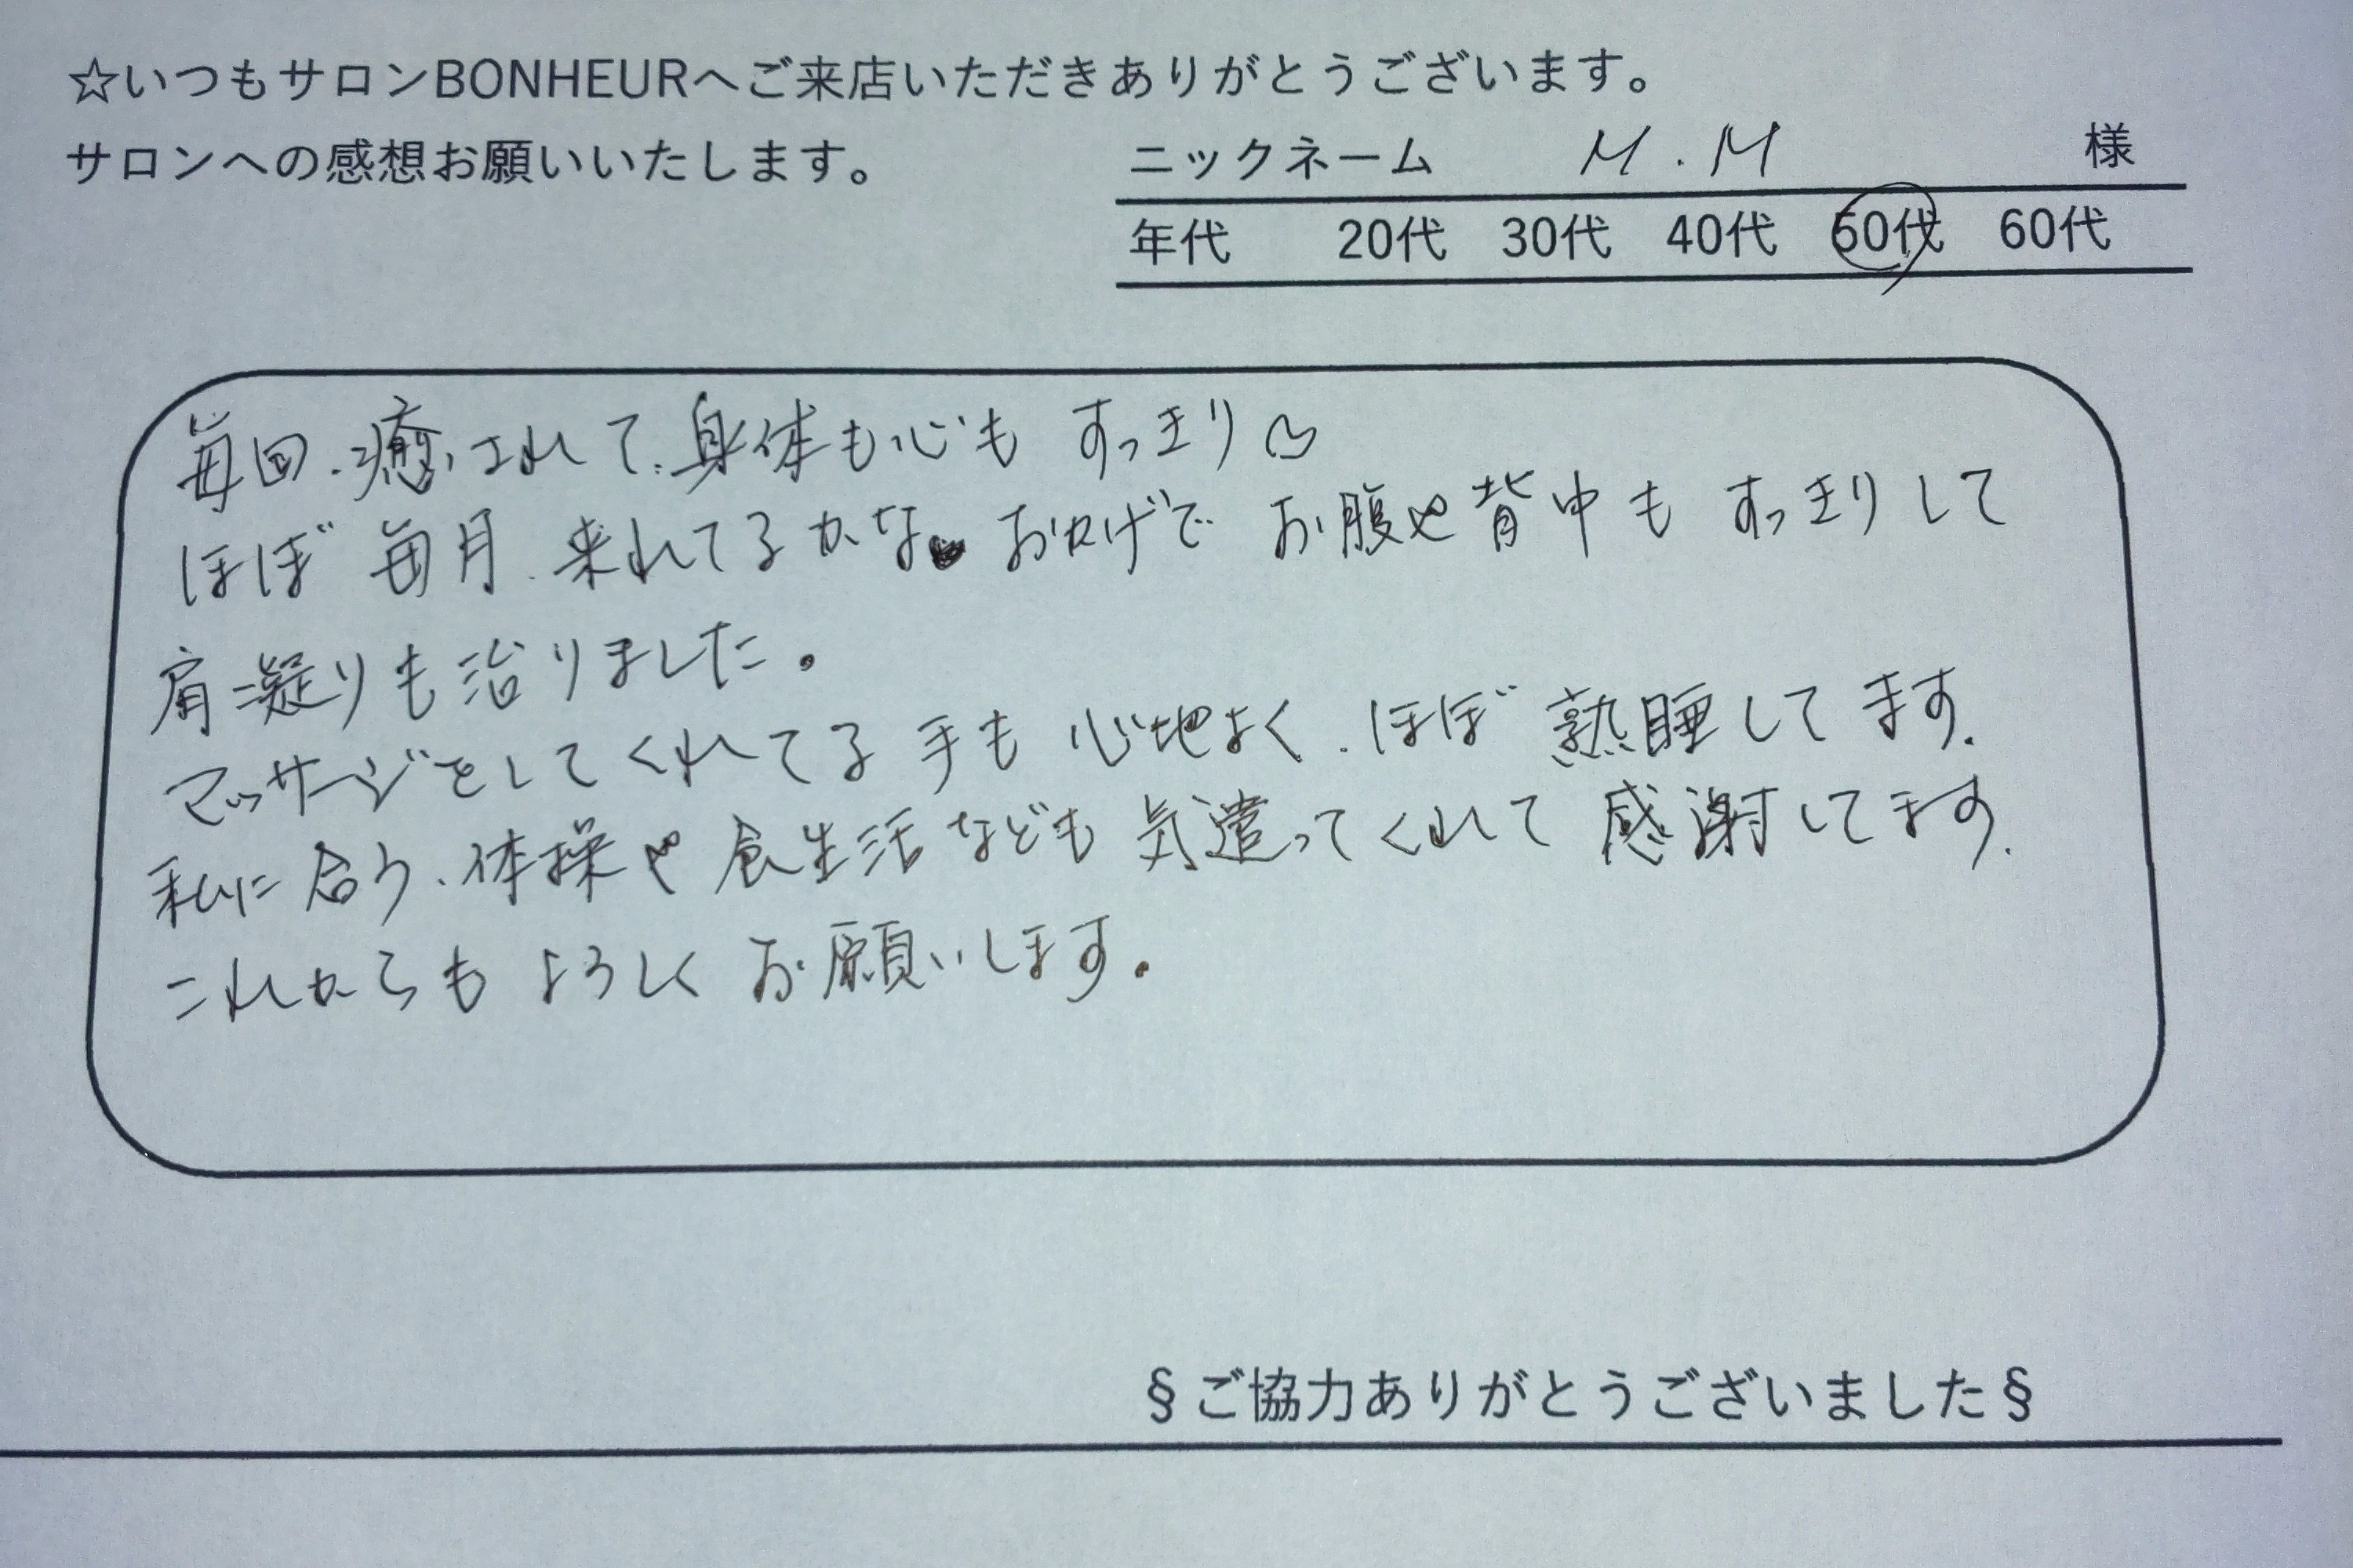 ☆いつもサロンBONHEURへご来店いただきありがとうございます。
サロンへの感想お願いいたします。
ニックネーム M.M 様
年代 20代 30代 40代 50代 60代
毎回、癒されて、身体も心もすっきり♡
ほぼ毎月、来れてるかな。おかげでお腹や背中もすっきりして
肩凝りも治りました。
マッサージをしてくれてる手も心地よく、ほぼ熟睡してます。
私に合う、体操や食生活なども気遣ってくれて感謝してます。
これからもよろしくお願いします。
§ご協力ありがとうございました§